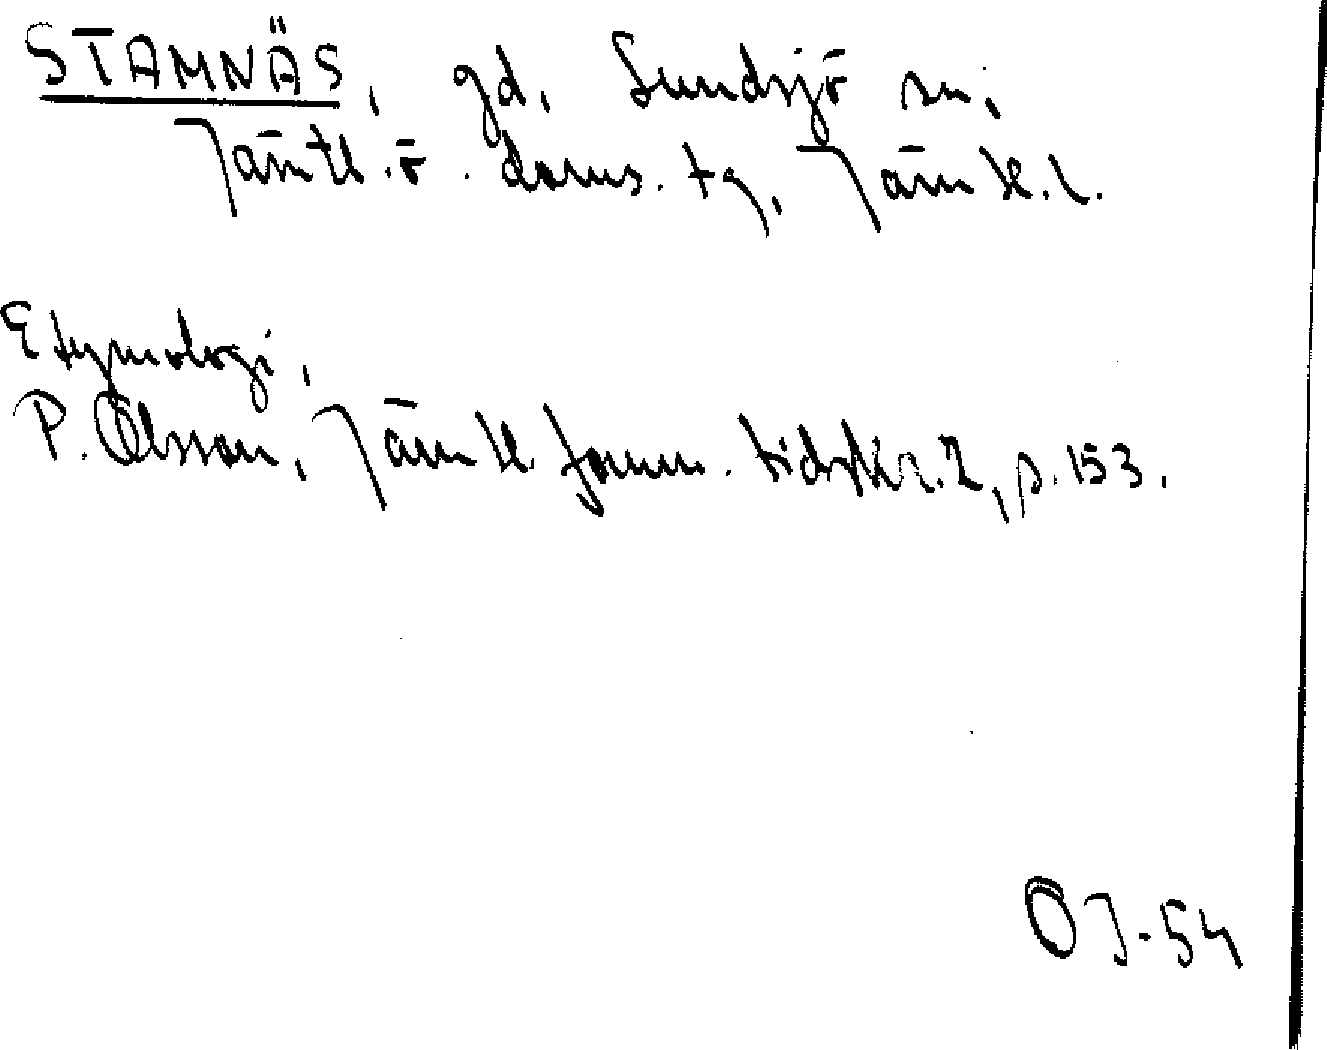 STAMNÄS, gd, Sundsjö sn,
Jämtl. ö. doms. tg, Jämtl. l.
Etymologi,
P. Olsson, Jämtl. fornm. tidskr. 2, s. 153.
OJ-54